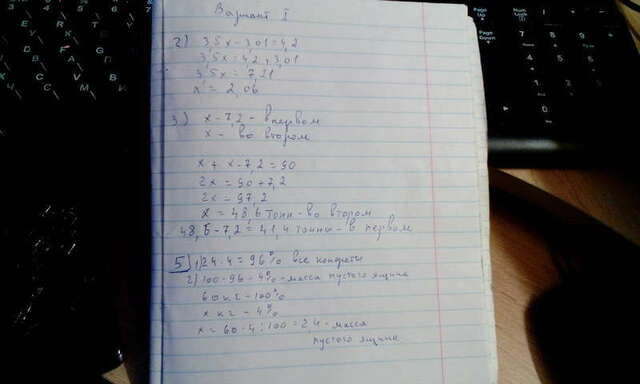 Вариант I
2) 3,5x - 3,01 = 4,2
3,5x = 4,2 + 3,01
3,5x = 7,21
x = 2,06
3) x - 7,2 - в первом
x - во втором
x + x - 7,2 = 90
2x = 90 + 7,2
2x = 97,2
x = 48,6 тонн - во втором
48,6 - 7,2 = 41,4 тонны - в первом
5) 1) 24 · 4 = 96% все конфеты
2) 100 - 96 = 4% - масса пустого ящика
60 кг - 100%
x кг - 4%
x = 60 · 4 : 100 = 2,4 - масса
пустого ящика